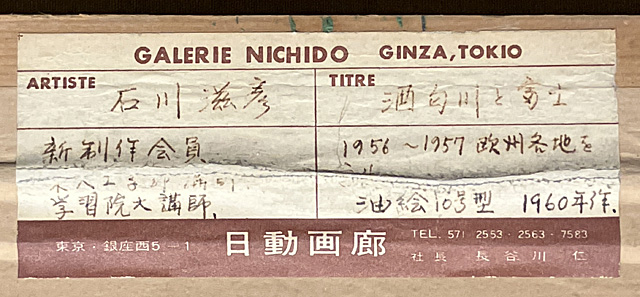 GALERIE NICHIDO GINZA, TOKIO
ARTISTE
石川 滋彦
TITRE
酒匂川と富士
新制作会員
学習院大講師.
1956～1957 欧州各地を
油絵10号型 1960年作.
東京・銀座西5-1
日動画廊
TEL. 571 2553・2563・7583
社長 長谷川 仁